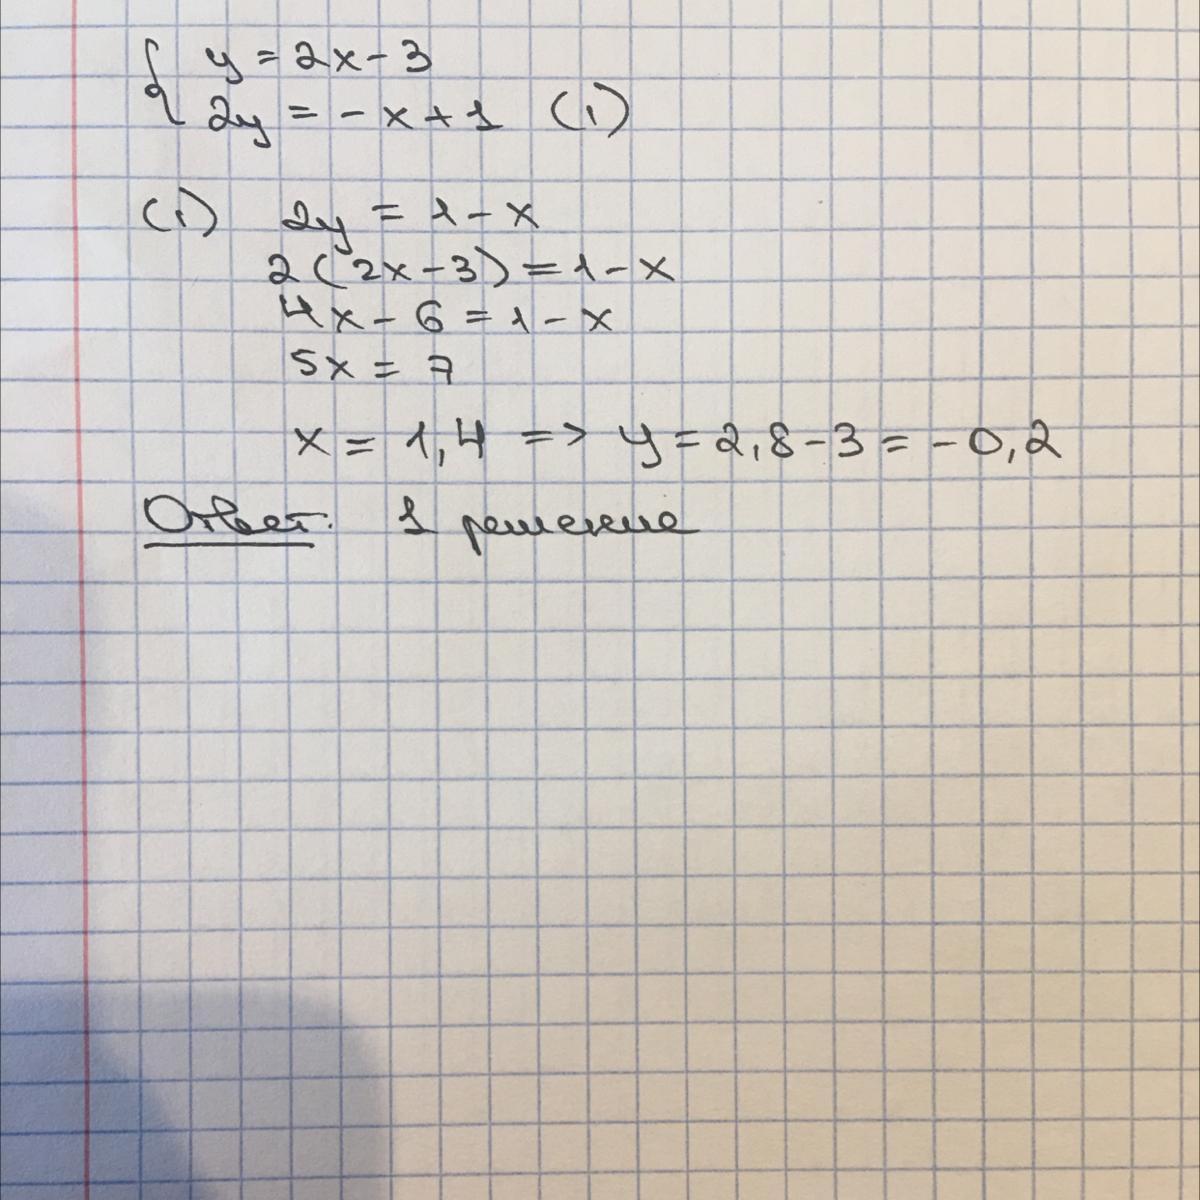 { y = 2x - 3
2y = - x + 1 (1)
(1) 2y = 1 - x
2(2x - 3) = 1 - x
4x - 6 = 1 - x
5x = 7
x = 1,4 => y = 2,8 - 3 = - 0,2
Ответ: 1 решение